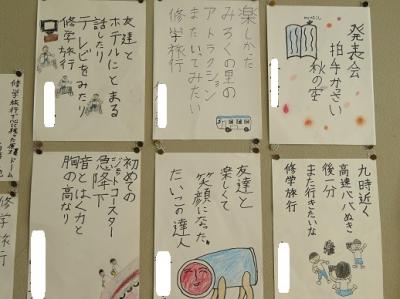 発表会
拍手かっさい
秋の空
楽しかった
みろくの里の
アトラクション
またいってみたい
修学旅行
友達と
ホテルにとまる
話したり
テレビをみたり
修学旅行
修学旅行で心に残った原爆ドーム
九時近く
高速ババぬき
後一分
また行きたいな
修学旅行
友達と
楽しくて
笑顔になった
たいこの達人
初めての
ジェットコースター
急降下
音とはく力と
胸の高なり
修学